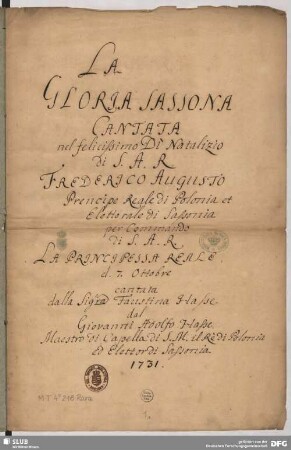 La
Gloria Sassona
Cantata
nel felicissimo Dì Natalizio
di S. A. R
Frederico Augusto
Prencipe Reale di Polonia et
Elettorale di Sassonia
per Commando
di S. A. R
La Principessa Reale
d. 7. Ottobre
cantata
dalla Sigra Faustina Hasse
dal
Giovanni Adolfo Hasse
Maestro di Capella di S. M. il Rè di Polonia
Et Elettor di Sassonia
1731.
1.
SLUB
DFG